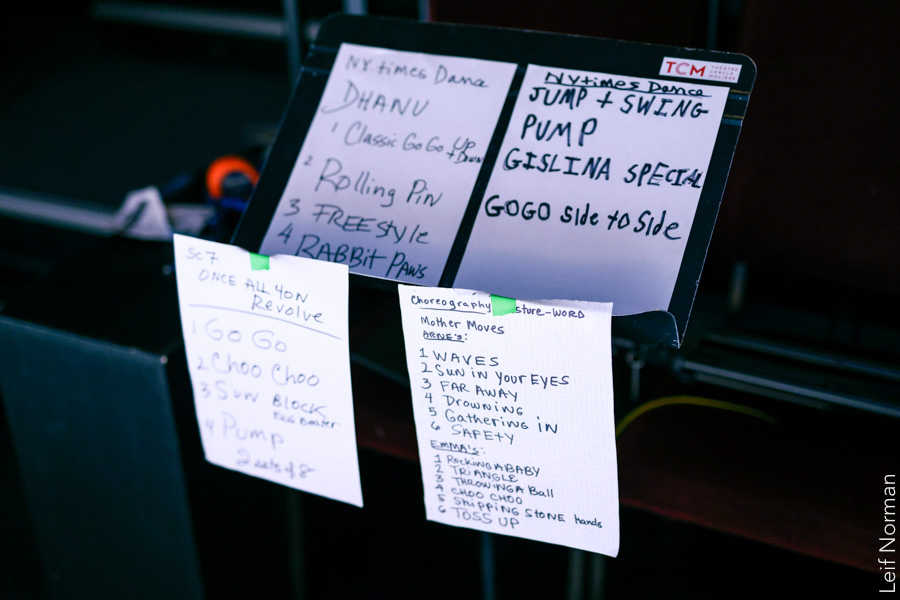 NY times Dance
DHANU
1 Classic GoGo Up
+ Down
2 Rolling Pin
3 FREEStyle
4 RABBit Paws
TCM
THÉÂTRE
CERCLE
MOLIÈRE
NY times Dance
JUMP + SWING
PUMP
GISLINA SPECIAL
GOGO side to Side
Sc 7
ONCE ALL 4 ON
Revolve
1 Go Go
2 Choo Choo
3 Sun Block
Egg Beater
4 Pump
2 sets of 8
Choreography sture-WORD
Mother Moves
ARNE'S:
1 WAVES
2 SUN iN YOUR EYES
3 FAR AWAY
4 DROWNING
5 Gathering in
6 SAFETY
EMMA'S:
1 Rocking A BABY
2 TRiANGLE
3 THROWING A Ball
4 CHOO CHOO
5 Skipping STONE hands
6 TOSS UP
Leif Norman